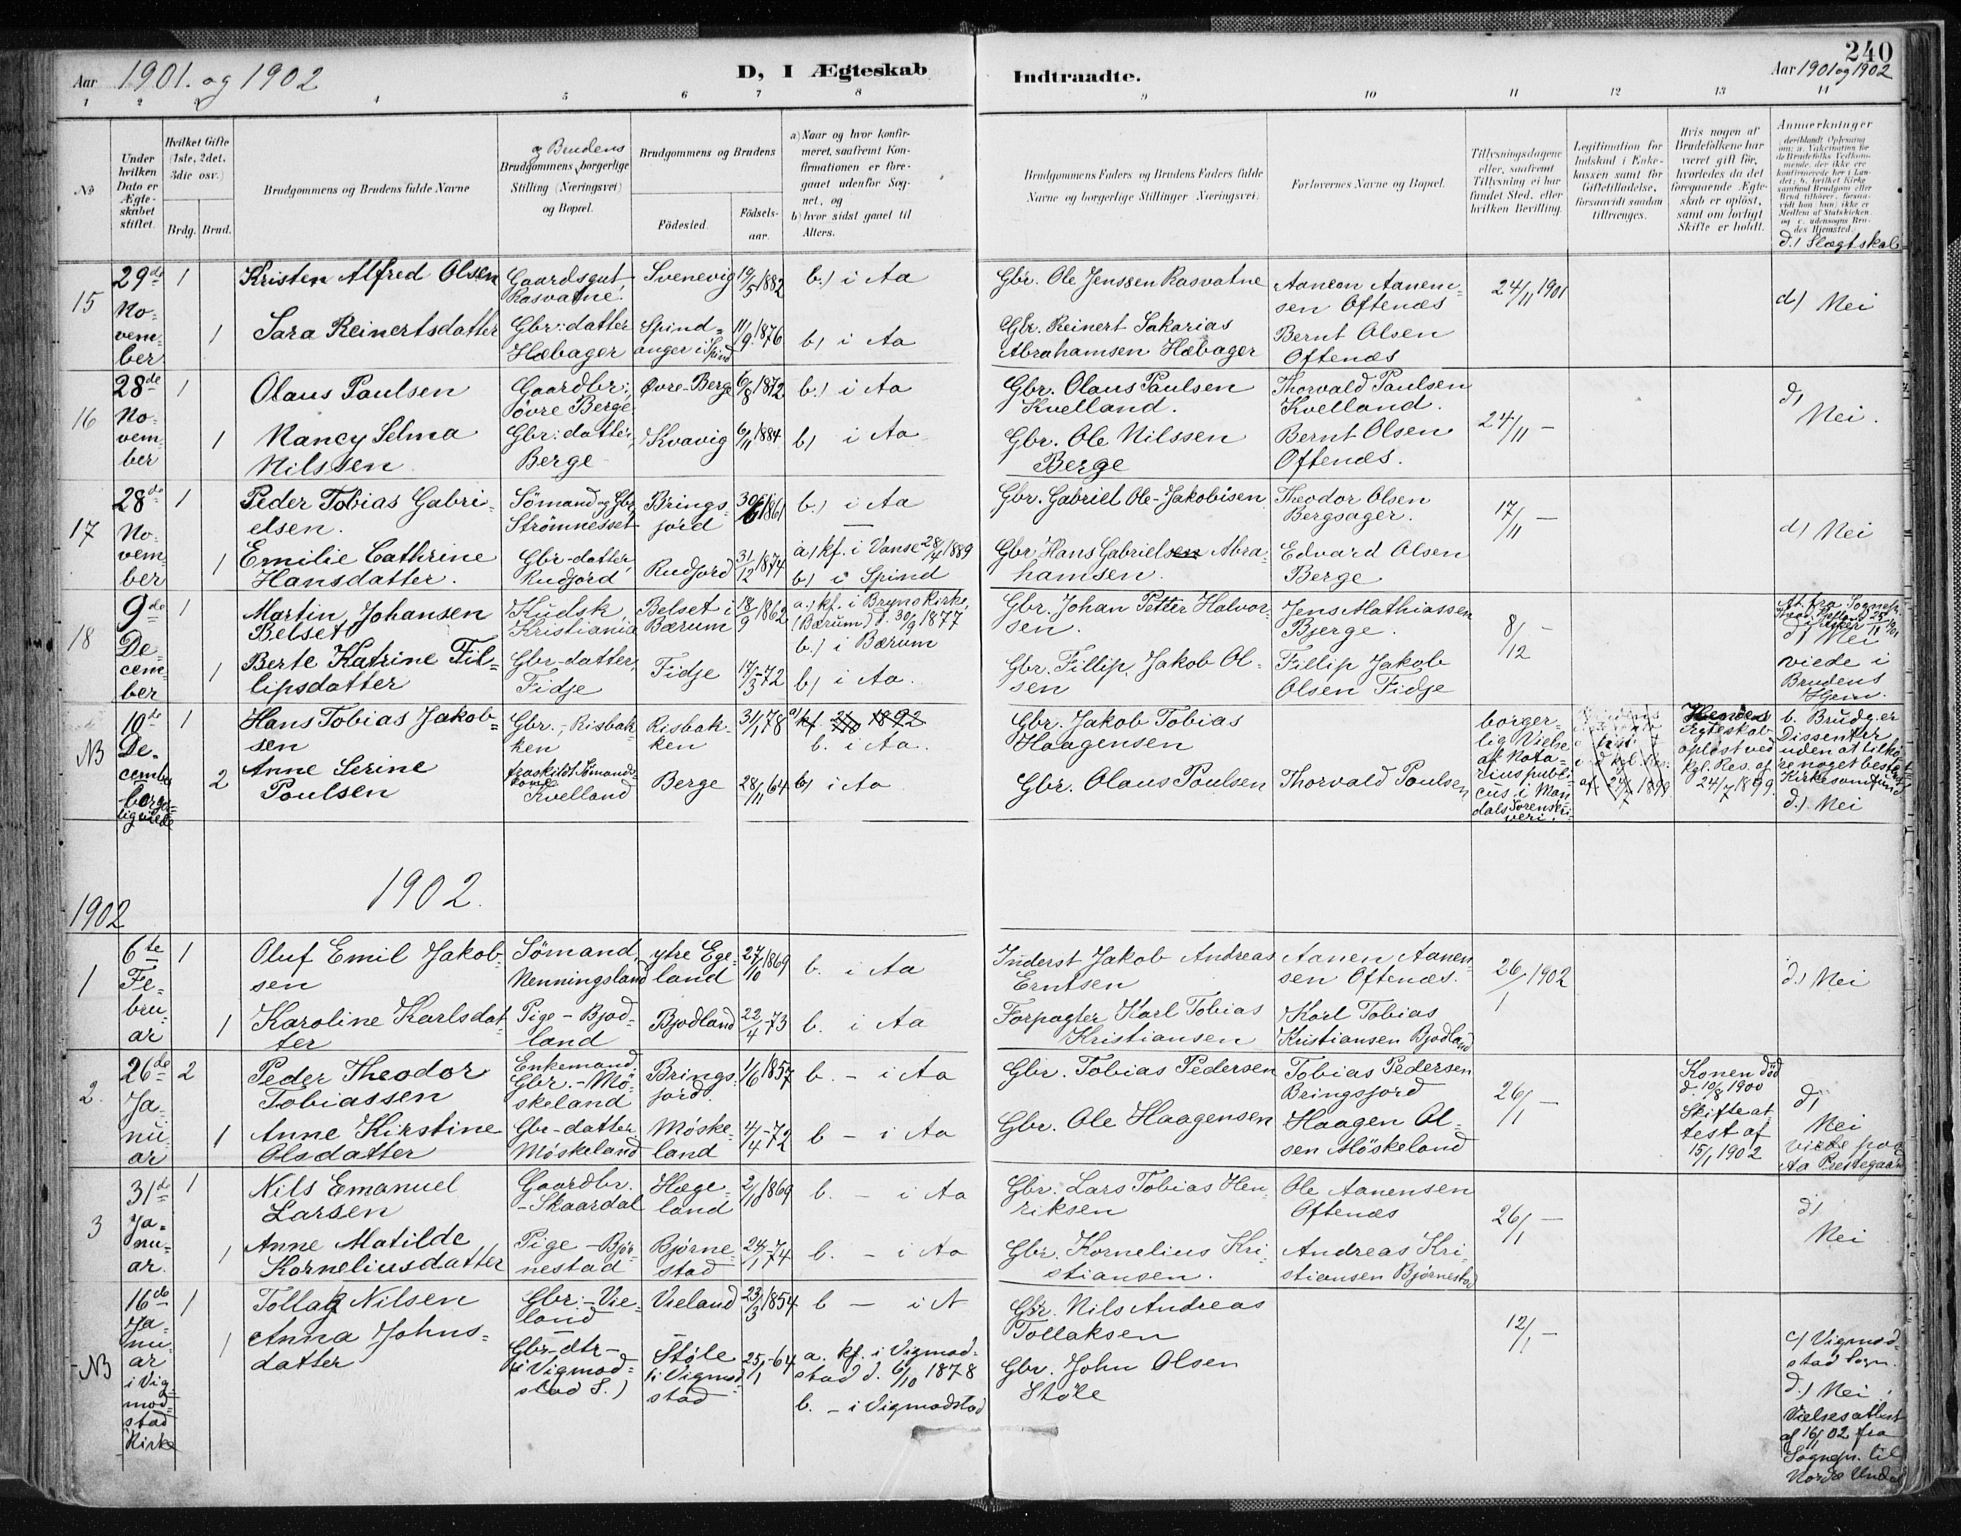 240
Aar 1901. og 1902
D, I Ægteskab
Indtraadte.
Aar 1901 og 1902
1 2 3 4 5 6 7 8 9 10 11 12 13 14
No
Under hvilken Dato er Ægteskabet stiftet.
Hvilket Gifte (1ste, 2det, 3die osv.)
Brdg. Brud.
Brudgommens og Brudens fulde Navne
og Brudens
Brudgommens borgerlige Stilling (Næringsvei) og Bopæl.
Brudgommens og Brudens
Fødested.
Fødselsaar.
a) Naar og hvor konfirmeret, saafremt Konfirmationen er foregaaet udenfor Sognet, og
b) hvor sidst gaaet til Alters.
Brudgommens Faders og Brudens Faders fulde Navne og borgerlige Stillinger (Næringsvei).
Forlovernes Navne og Bopæl.
Tillysningsdagene eller, saafremt Tillysning ei har fundet Sted, efter hvilken Bevilling.
Legitimation for Indskud i Enkekassen samt for Giftetilladelse, forsaavidt saadan tiltrænges.
Hvis nogen af Brudefolkene har været gift før, hvorledes da det foregaaende Ægteskab er opløst, samt om lovligt Skifte er holdt.
Anmerkninger
d.) Slægtskab
15
29de November
1
Kristen Alfred Olsen
Gaardsgut, Rasvatne.
Svenevig
19/5 1882
b.) i Aa
Gbr. Ole Jenssen Rasvatne
Aanen Aanensen Oftenæs
24/11 1901
d) Nei
1
Sara Reinertsdatter
Gbr: datter Hæbager
Spindanger i Spind
11/9 1876
b) i Aa
Gbr. Reinert Sakarias Abrahamsen Hæbager
Bernt Olsen Oftenæs
16
28de November
1
Olaus Paulsen
Gaardbr:, øvre Berge
Øvre-Berge
6/8 1872
b.) i Aa
Gbr. Olaus Paulsen Kvelland.
Thorvald Paulsen Kvelland.
24/11 —
d) Nei.
1
Nancy Selma Nilssen
Gbr: datter, Berge
Kvavig
6/11 1884
b) i Aa
Gbr. Ole Nilssen Berge
Bernt Olsen Oftenæs.
17
28de November
1
Peder Tobias Gabrielsen.
Sömand og Gbr, Strömnesset
Bringsjord
30/6 1861
b.) i Aa
Gbr. Gabriel Ole-Jakobsen
Theodor Olsen Bergsager.
17/11 —
d) Nei
1
Emilie Cathrine Hansdatter.
Gbr-datter, Rudjord
Rudjord
31/12 1874
a) kf. i Vanse 28/4 1889
b) i Spind
Gbr. Hans Gabrielsen Abrahamsen.
Edvard Olsen Berge
18
9de December
1
Martin Johansen Belset
Kudsk, Kristiania
Belset i Bærum
18/9 1862
a.) kf. i Bryns Kirke, (Bærum) d. 30/9 1877
b.) i Bærum
Gbr. Johan Petter Halvorsen.
Jens Mathiassen Bjerge.
8/12 —
d) Nei
viede i Brudens Hjem.
1
Berte Katrine Fillipsdatter
Gbr-datter, Fidje
Fidje
17/3 -72
b) i Aa.
Gbr. Fillip. Jakob Olsen
Fillip Jakob Olsen Fidje
NB
10de December borgerlig viede
1
Hans Tobias Jakobsen
Gbr. - Risbakken
Risbakken
3/1 78
a) kf 1892
b. i Aa.
Gbr. Jakob Tobias Haagensen
borgerlig Vielse af Notarius publicus i Mandals Sorenskriveri.
Ægteskab opløst ved kgl. Res. af 24/7 1899.
b. Brudg. er Dissenter uden at tilhøre noget bestemt Kirkesamfund
d.) Nei
2
Anne Serine Poulsen
fraskildt Sömandskone Kvelland
Berge
28/11 64
b) i Aa
Gbr. Olaus Poulsen
Thorvald Poulsen
1902.
1902
1
6te Februar
1
Oluf Emil Jakobsen
Sömand, Nenningsland
ytre Egeland
27/10 1869
b. i Aa
Inderst Jakob Andreas Erntsen
Aanen Aanensen Oftenæs.
26/1 1902
d.) Nei
1
Karoline Karlsdatter
Pige - Bjodland
Bjodland
22/4 -73
b. i Aa
Forpagter Karl Tobias Kristiansen
Karl Tobias Kristiansen Bjodland
2.
26de Januar
2
Peder Theodor Tobiassen
Enkemand, Gbr. - Möskeland
Bringsjord.
1/6 1857
b. - i Aa
Gbr. Tobias Pedersen
Tobias Pedersen Bringsjord
26/1 —
Konen död d. 10/8 1900 Skifteattest af 15/1 1902
d) Nei
viede paa Aa Prestegaard
1
Anne Kirstine Olsdatter
Gbr-datter Möskeland
Möskeland
4/4 -72
b - i Aa
Gbr. Ole Haagensen
Haagen Olsen Möskeland
3
31de Januar
1
Nils Emanuel Larsen
Gaardbr. - Skaardal
Hægeland
2/10 1869
b. - i Aa
Gbr. Lars Tobias Henriksen
Ole Aanensen Oftenæs
26/1 —
d) Nei
1
Anne Matilde Korneliusdatter
Pige - Björnestad
Björnestad
24/1 -74
b. - i Aa
Gbr. Kornelius Kristiansen.
Andreas Kristiansen Björnestad
NB
16de Januar i Vigmodstad Kirke
1
Tollak Nilsen
Gbr: - Vieland
Vieland
23/3 1854
b - i A
Gbr. Nils Andreas Tollaksen
12/1 —
1
Anna Johnsdatter
Gbr-dtr- (i Vigmodstad S.)
Støle (i Vigmodstad
25/1 -64
a. kf. i Vigmodstad d. 6/10 1878
b. - i Vigmodstad
Gbr. John Olsen Støle
c) Vigmodstad Sogn.
d.) Nei
Vielsesattest af 16/1 02 fra Sognepr. til Nordre Undal